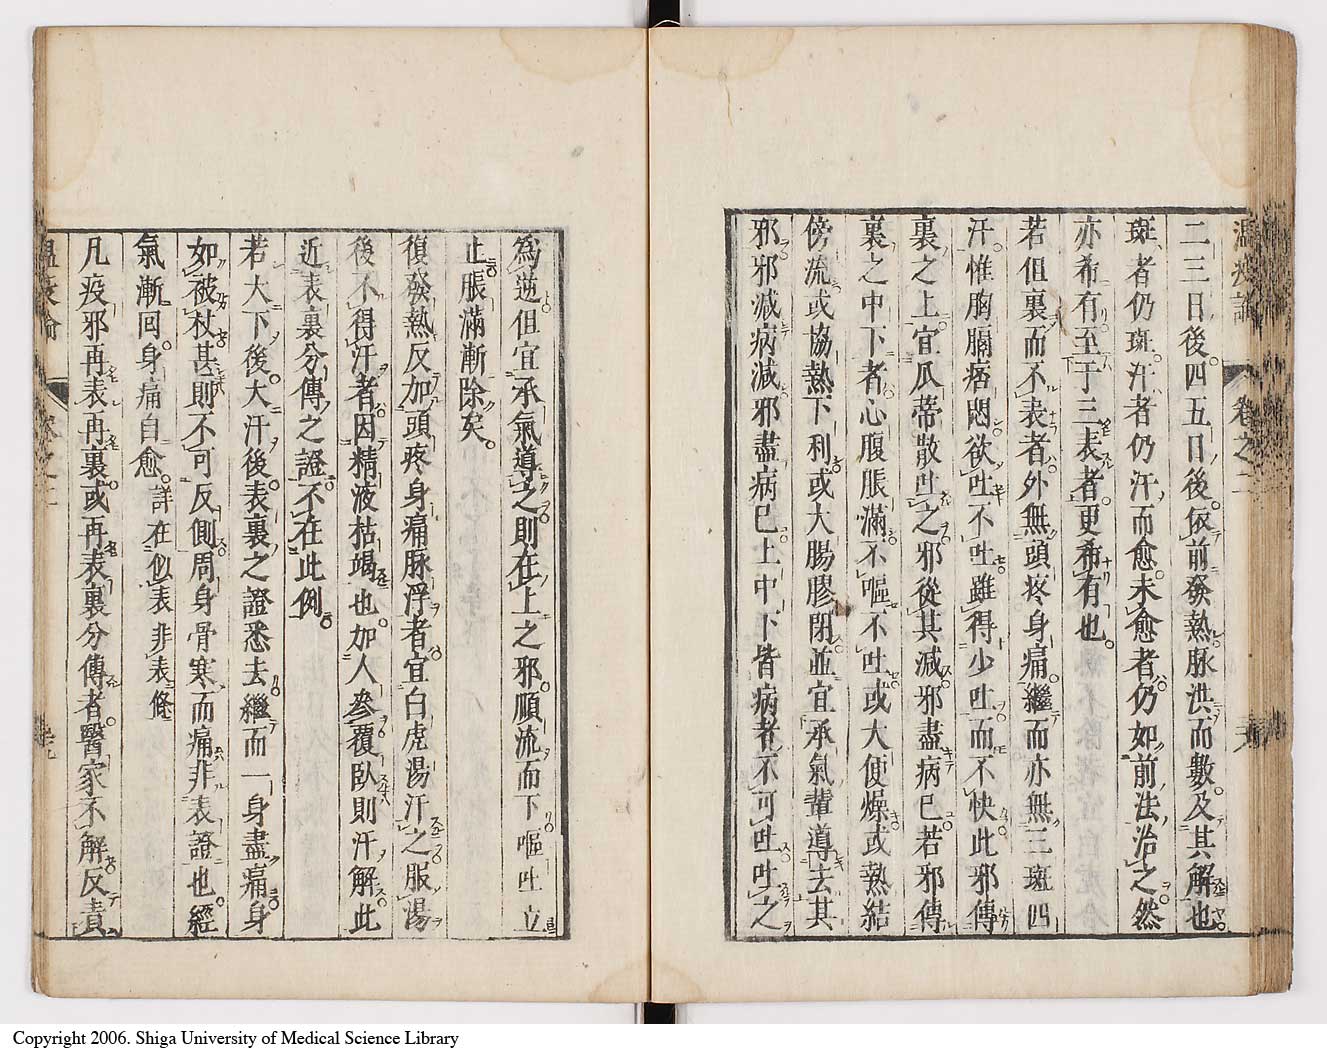 溫疫論　卷之二
二三日後四五日後依前發熱脉洪而數及其解也
斑者仍斑汗者仍汗而愈未愈者仍如前法治之然
亦希有至于三表者更希有也
若但裏而不表者外無頭疼身痛繼而亦無三斑四
汗惟胸膈痞悶欲吐不吐雖得少吐而不快此邪傳
裏之上宜瓜蒂散吐之邪從其減邪盡病已若邪傳
裏之中下者心腹脹滿不嘔不吐或大便燥或熱結
傍流或協熱下利或大腸膠閉並宜承氣輩導去其
邪邪減病減邪盡病已上中下皆病者不可吐吐之
為逆但宜承氣導之則在上之邪順流而下嘔吐立
止脹滿漸除矣
復發熱反加頭疼身痛脉浮者宜白虎湯汗之服湯
後不得汗者因精液枯竭也加人參覆臥則汗解此
近表裏分傳之證不在此例
若大下後大汗後表裏之證悉去繼而一身盡痛身
如被杖甚則不可反側周身骨寒而痛非表證也經
氣漸回身痛自愈詳在似表非表條
凡疫邪再表再裏或再表裏分傳者醫家不解反責
Copyright 2006. Shiga University of Medical Science Library